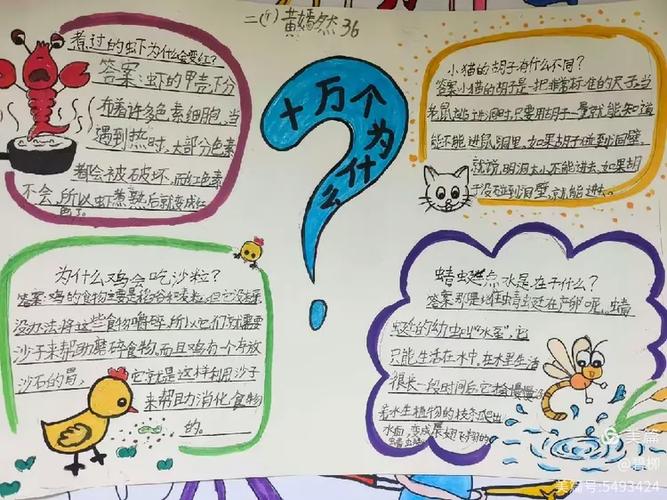 二(1) 黄嫣然 36
煮过的虾为什么会变红?
答案:虾的甲壳下分
布着许多色素细胞,当
遇到热时,大部分色素
都会被破坏,而红色素
不会,所以虾煮熟后就变成红
色了。
十万个为什么
小猫的胡子有什么不同?
答案:小猫的胡子是一把非常标准的尺子,当
老鼠逃进洞时,只要用胡子一量就能知道
能不能进鼠洞里,如果胡子碰到洞壁,
就说明洞太小不能进去,如果胡
子没碰到洞壁,就能进去。
为什么鸡会吃沙粒?
答案:鸡的食物主要是稻谷和麦粒,但它没有牙,
没办法将这些食物嚼碎,所以它们就需要
沙子来帮助磨碎食物,而且鸡有一个存放
沙石的胃,它就是这样利用沙子
来帮助消化食物
的。
蜻蜓点水是在干什么?
答案:那是雌蜻蜓在产卵呢,蜻
蜓的幼虫叫"水虿",它
只能生活在水中,在水里生活
很长一段时间后,它才会慢慢沿
着水生植物的枝条爬出
水面,变成展翅飞翔的
蜻蜓
美篇
@碧柳
美篇号:5493424